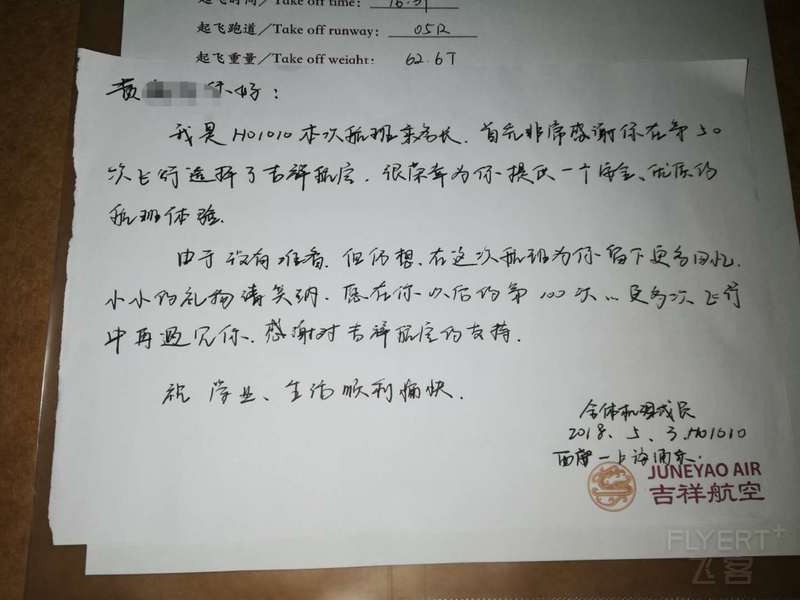 起飞时间／Take off time: 16:31
起飞跑道／Take off runway: 05R
起飞重量／Take off weight: 62.6T
黄 你好：
我是HO1010本次航班乘务长。首先非常感谢你在第50
次飞行选择了吉祥航空。很荣幸为你提供一个安全、优质的
航班体验。
由于没有准备。但仍想。在这次航班为你留下更多回忆。
小小的礼物请笑纳。愿在你以后的第100次…更多次飞行
中再遇见你。感谢对吉祥航空的支持。
祝 学业、生活顺利愉快。
全体机组成员
2018. 5. 3. HO1010
西 — 上海浦东.
JUNEYAO AIR
吉祥航空
FLYERT+
飞客